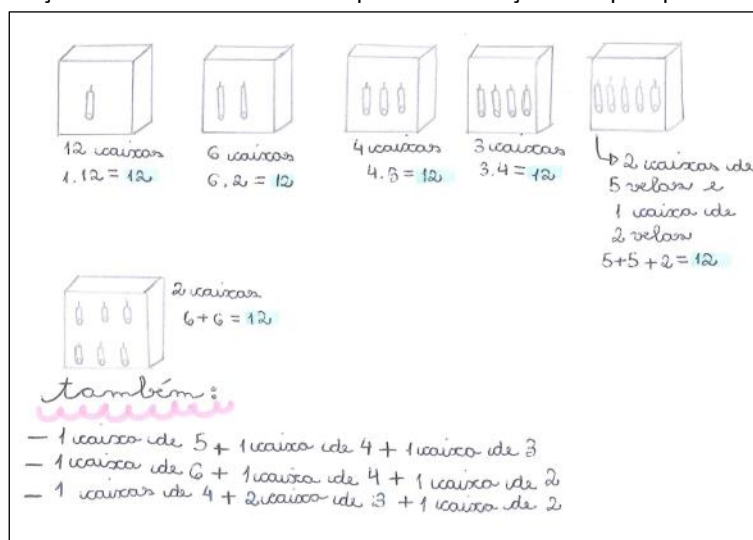 12 caixas
1.12 = 12
6 caixas
6.2 = 12
4 caixas
4.3 = 12
3 caixas
3.4 = 12
2 caixas de
5 velas e
1 caixa de
2 velas
5+5+2 = 12
2 caixas
6+6 = 12
também:
- 1 caixa de 5 + 1 caixa de 4 + 1 caixa de 3
- 1 caixa de 6 + 1 caixa de 4 + 1 caixa de 2
- 1 caixas de 4 + 2 caixa de 3 + 1 caixa de 2